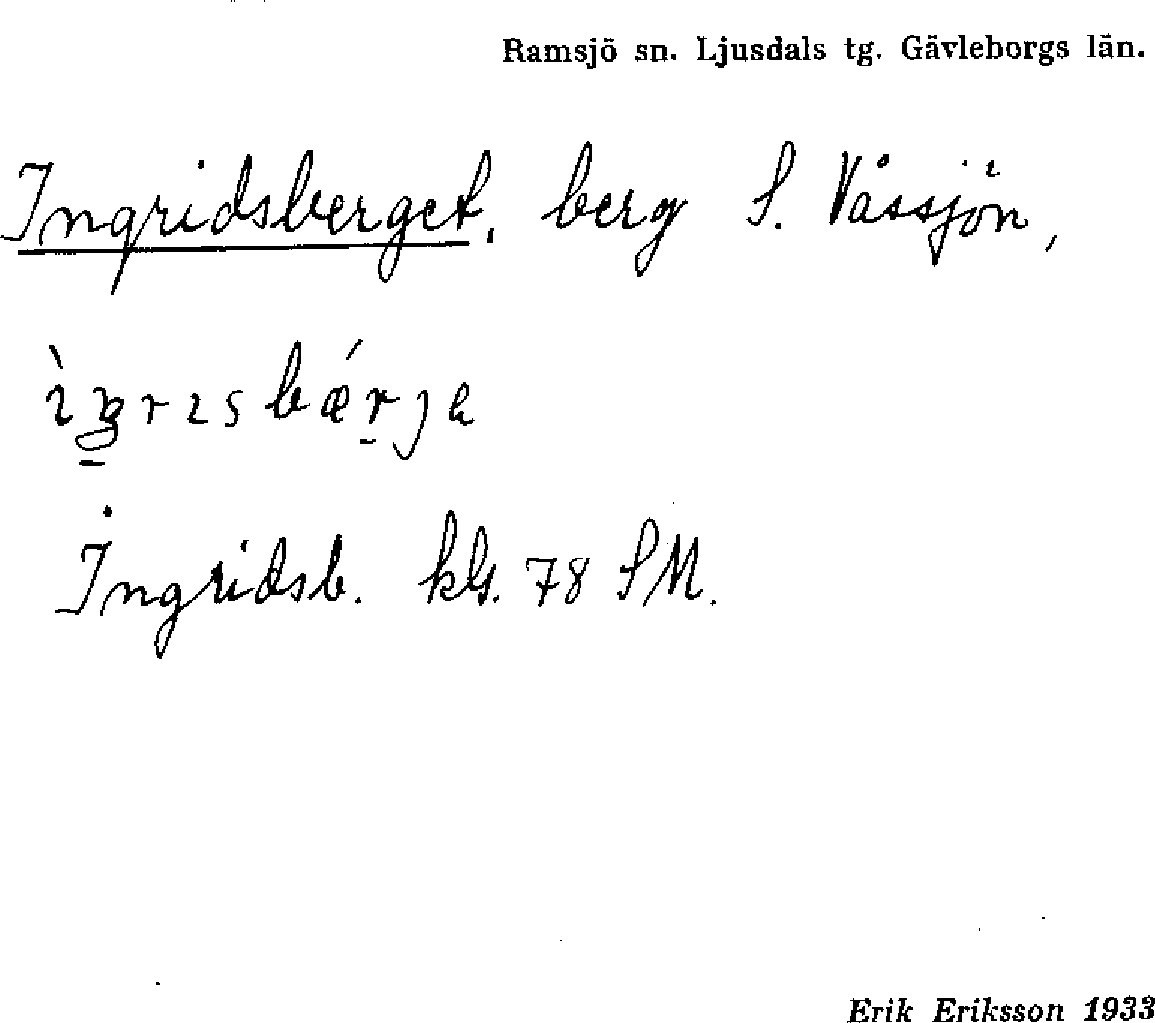 Ramsjö sn. Ljusdals tg. Gävleborgs län.
Ingridsberget, berg S. Våssjön,
ìŋrɪsbǽrjɐ
Ingridsb. kls. 78 SM.
Erik Eriksson 1933